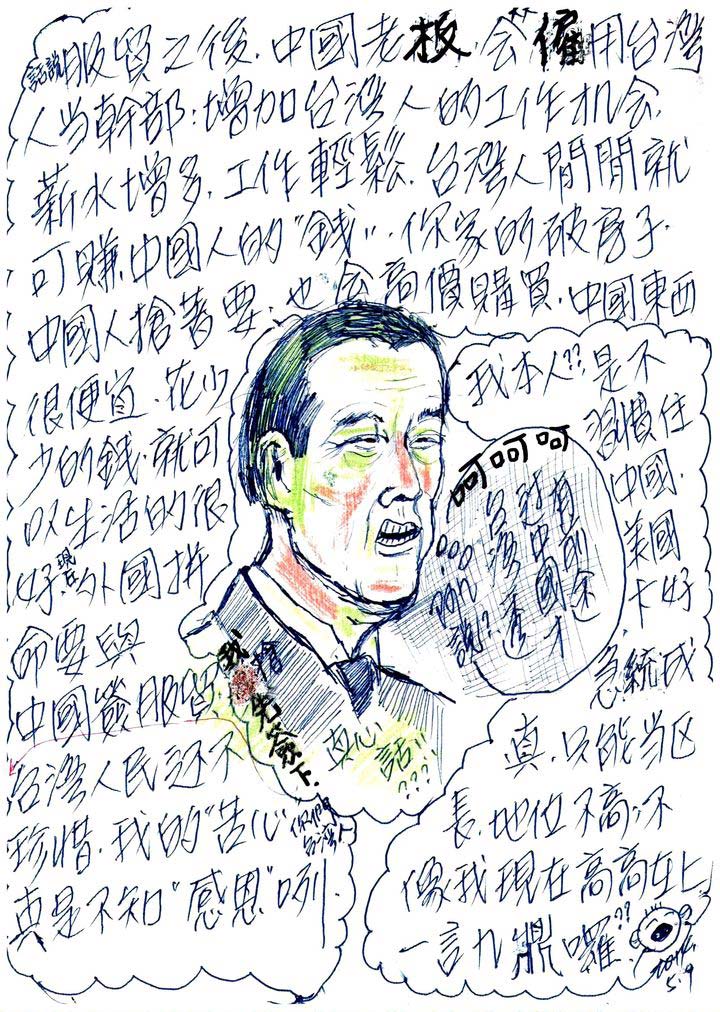 話說服貿之後.中國老板.会"僱用台灣
人当幹部:增加台灣人的工作机会,
薪水增多,工作輕鬆.台灣人閒閒就
可賺.中國人的"錢"..你家的破房子.
中國人搶著要.也会高價購買.中國東西
很便宜.花少
少的錢.就可
以生活的很
好.現在外國拼
命要與
中國簽服貿.
我搶先簽下.
台灣人民还不
珍惜.我的"苦心
你們台灣人
真是不知"感恩"咧.
真心話!!
???
我本人??是不
習慣住
中國.
美國
卡好
急統成
真.只能当区
長.地位不高;不
像我現在高高在上
一言九鼎囉??
呵呵呵
中國才
台灣
說?
5.9